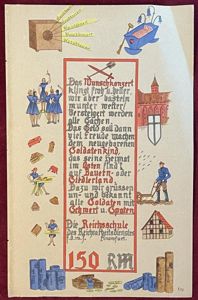 Das Wunschkonzert
klingt froh u. heller,
wir aber basteln
munter weiter!
Versteigert werden
alle Sachen.
Das Geld soll dann
viel Freude machen
dem neugeborenen
Soldatenkind,
das seine Heimat
im Osten find't
auf Bauern- oder
Siedlerland.
Dazu wir grüssen
un- und bekannt
alle Soldaten mit
Schwert u. Spaten
Die Reichsschule
des Reichsarbeitsdienstes
150 RM